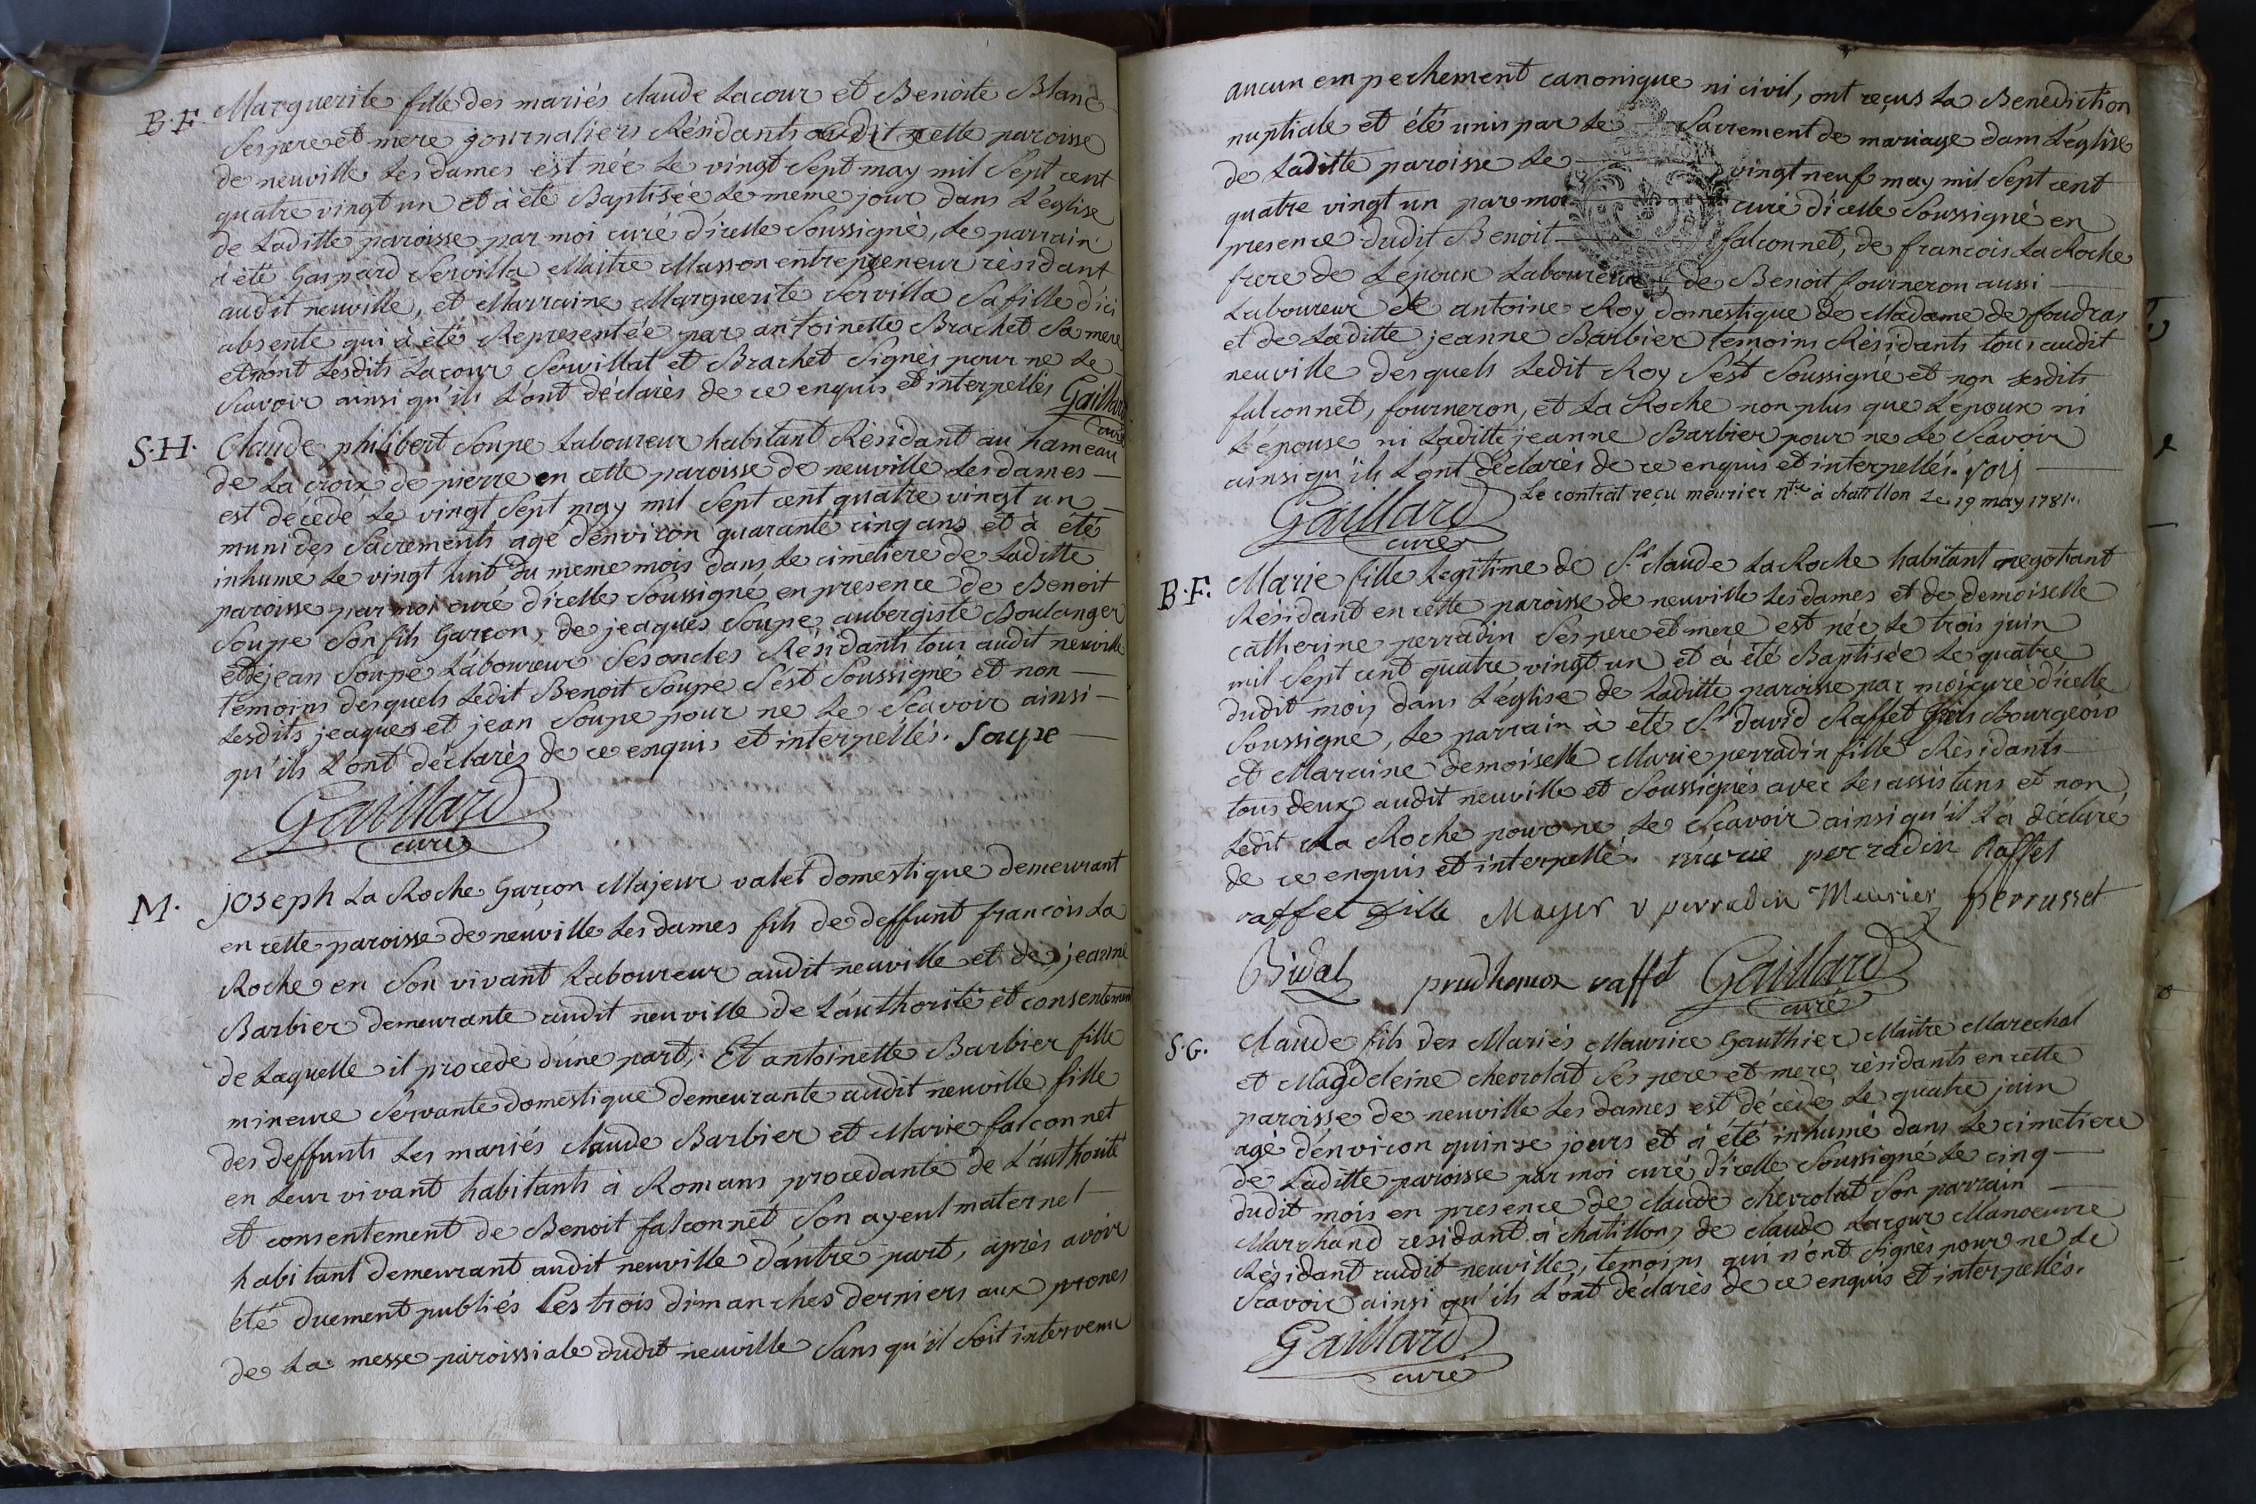 B.F. Marguerite fille des mariés claude Lacour et Benoite Blanc
Ses pere et mere journaliers Résidants en cette paroisse
de neuville Les dames est née Le vingt Sept may mil Sept cent
quatre vingt un et à été Baptisée Le meme jour dans L'église
de Laditte paroisse par moi curé d'icelle Soussigné, Le parrain
à été Gaspard Servilla Maitre Masson entrepreneur residant
audit neuville, et Marraine Marguerite Servilla Sa fille d'ici
absente qui à été Representée par antoinette Brachet Sa mere
et n'ont Lesdits Lacour Servillat et Brachet Signés pour ne Le
Scavoir ainsi qu'ils L'ont déclarés de ce enquis et interpellés Gaillard
curé
S.H. Claude philibert Soupe Laboureur habitant Résidant au hameau
de La croix de pierre en cette paroisse de neuville Les dames
est décédé Le vingt Sept may mil Sept cent quatre vingt un
muni des Sacrements agé d'environ quarante cinq ans et à été
inhumé Le vingt huit du meme mois dans Le cimetiere de Laditte
paroisse par moi curé d'icelle Soussigné en presence de Benoit
Soupe Son fils Garçon, de jeaques Soupe aubergiste Boulanger
et de jean Soupe Laboureur Ses oncles Résidants tous audit neuville
temoins desquels Ledit Benoit Soupe S'est Soussigné et non
Lesdits jeaques et jean Soupe pour ne Le Scavoir ainsi
qu'ils L'ont déclarés de ce enquis et interpellés. Soupe
Gaillard
curé
M. joseph La Roche Garçon Majeur valet domestique demeurant
en cette paroisse de neuville Les dames fils de deffunt francois La
Roche en Son vivant Laboureur audit neuville et de jeanne
Barbier demeurante audit neuville de L'authorité et consentement
de Laquelle il procede d'une part; Et antoinette Barbier fille
mineure Servante domestique demeurante audit neuville fille
des deffunts Les mariés claude Barbier et Marie falconnet
en Leur vivant habitants à Romans procedante de L'authorité
et consentement de Benoit falconnet Son ayeul maternel
habitant demeurant audit neuville d'autre part, après avoir
été duement publiés Les trois dimanches derniers aux prones
de La messe paroissiale dudit neuville Sans qu'il Soit intervenu
aucun empechement canonique ni civil, ont reçus La Benediction
nuptiale et été unis par Le Sacrement de mariage dans L'église
de Laditte paroisse Le vingt neuf may mil Sept cent
quatre vingt un par moi curé d'icelle Soussigné en
presence dudit Benoit falconnet, de francois La Roche
frere de L'epoux Laboureur, de Benoit fourneron aussi
Laboureur de antoine Roy domestique de Madame de foudras
et de Laditte jeanne Barbier temoins Résidants tous audit
neuville desquels Ledit Roy S'est Soussigné et non Lesdits
falconnet, fourneron, et La Roche non plus que L'epoux ni
L'épouse ni Laditte jeanne Barbier pour ne Le Scavoir
ainsi qu'ils L'ont déclarés de ce enquis et interpellés. roy
Le contrat reçu meurier n.re à chatillon Le 19 may 1781.
Gaillard
curé
B.F. Marie fille Legitime de S.r claude La Roche habitant negotiant
Résidant en cette paroisse de neuville Les dames et de demoiselle
catherine perradin Ses pere et mere est née Le trois juin
mil Sept cent quatre vingt un et à été Baptisée Le quatre
dudit mois dans L'église de Laditte paroisse par moi curé d'icelle
Soussigné, Le parrain à été S.r david Raffet Bourgeois
et Maraine demoiselle Marie perradin fille Résidants
tous deux audit neuville et Soussignés avec Les assistans et non
Ledit La Roche pour ne Le Scavoir ainsi qu'il L'a déclaré
de ce enquis et interpellé. marie perradin Raffet
raffet fille Mayer v perradin Meurier perrusset
Bidal prudhomon raffet Gaillard
curé
S.G. Claude fils des Mariés Maurice Gauthier Maitre Marechal
et Magdeleine chevrolat Ses pere et mere résidants en cette
paroisse de neuville Les dames est décédé Le quatre juin
agé d'environ quinze jours et à été inhumé dans Le cimetiere
de Laditte paroisse par moi curé d'icelle Soussigné Le cinq
dudit mois en presence de claude chevrolat Son parrain
Marchand residant à chatillon, de claude Lacour Manoeuvre
Résidant audit neuville, temoins qui n'ont Signés pour ne Le
Scavoir ainsi qu'ils L'ont déclarés de ce enquis et interpellés.
Gaillard
curé